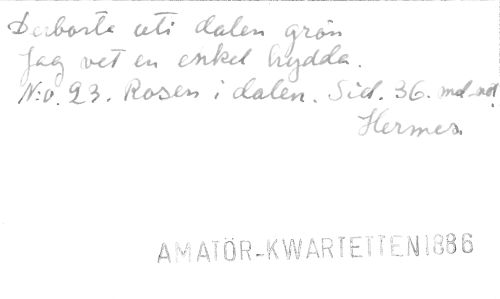 Derborta uti dalen grön
Jag vet en enkel hydda.
N:o. 23. Rosen i dalen. Sid. 36. med not.
Hermes.
AMATÖR-KWARTETTEN 1886